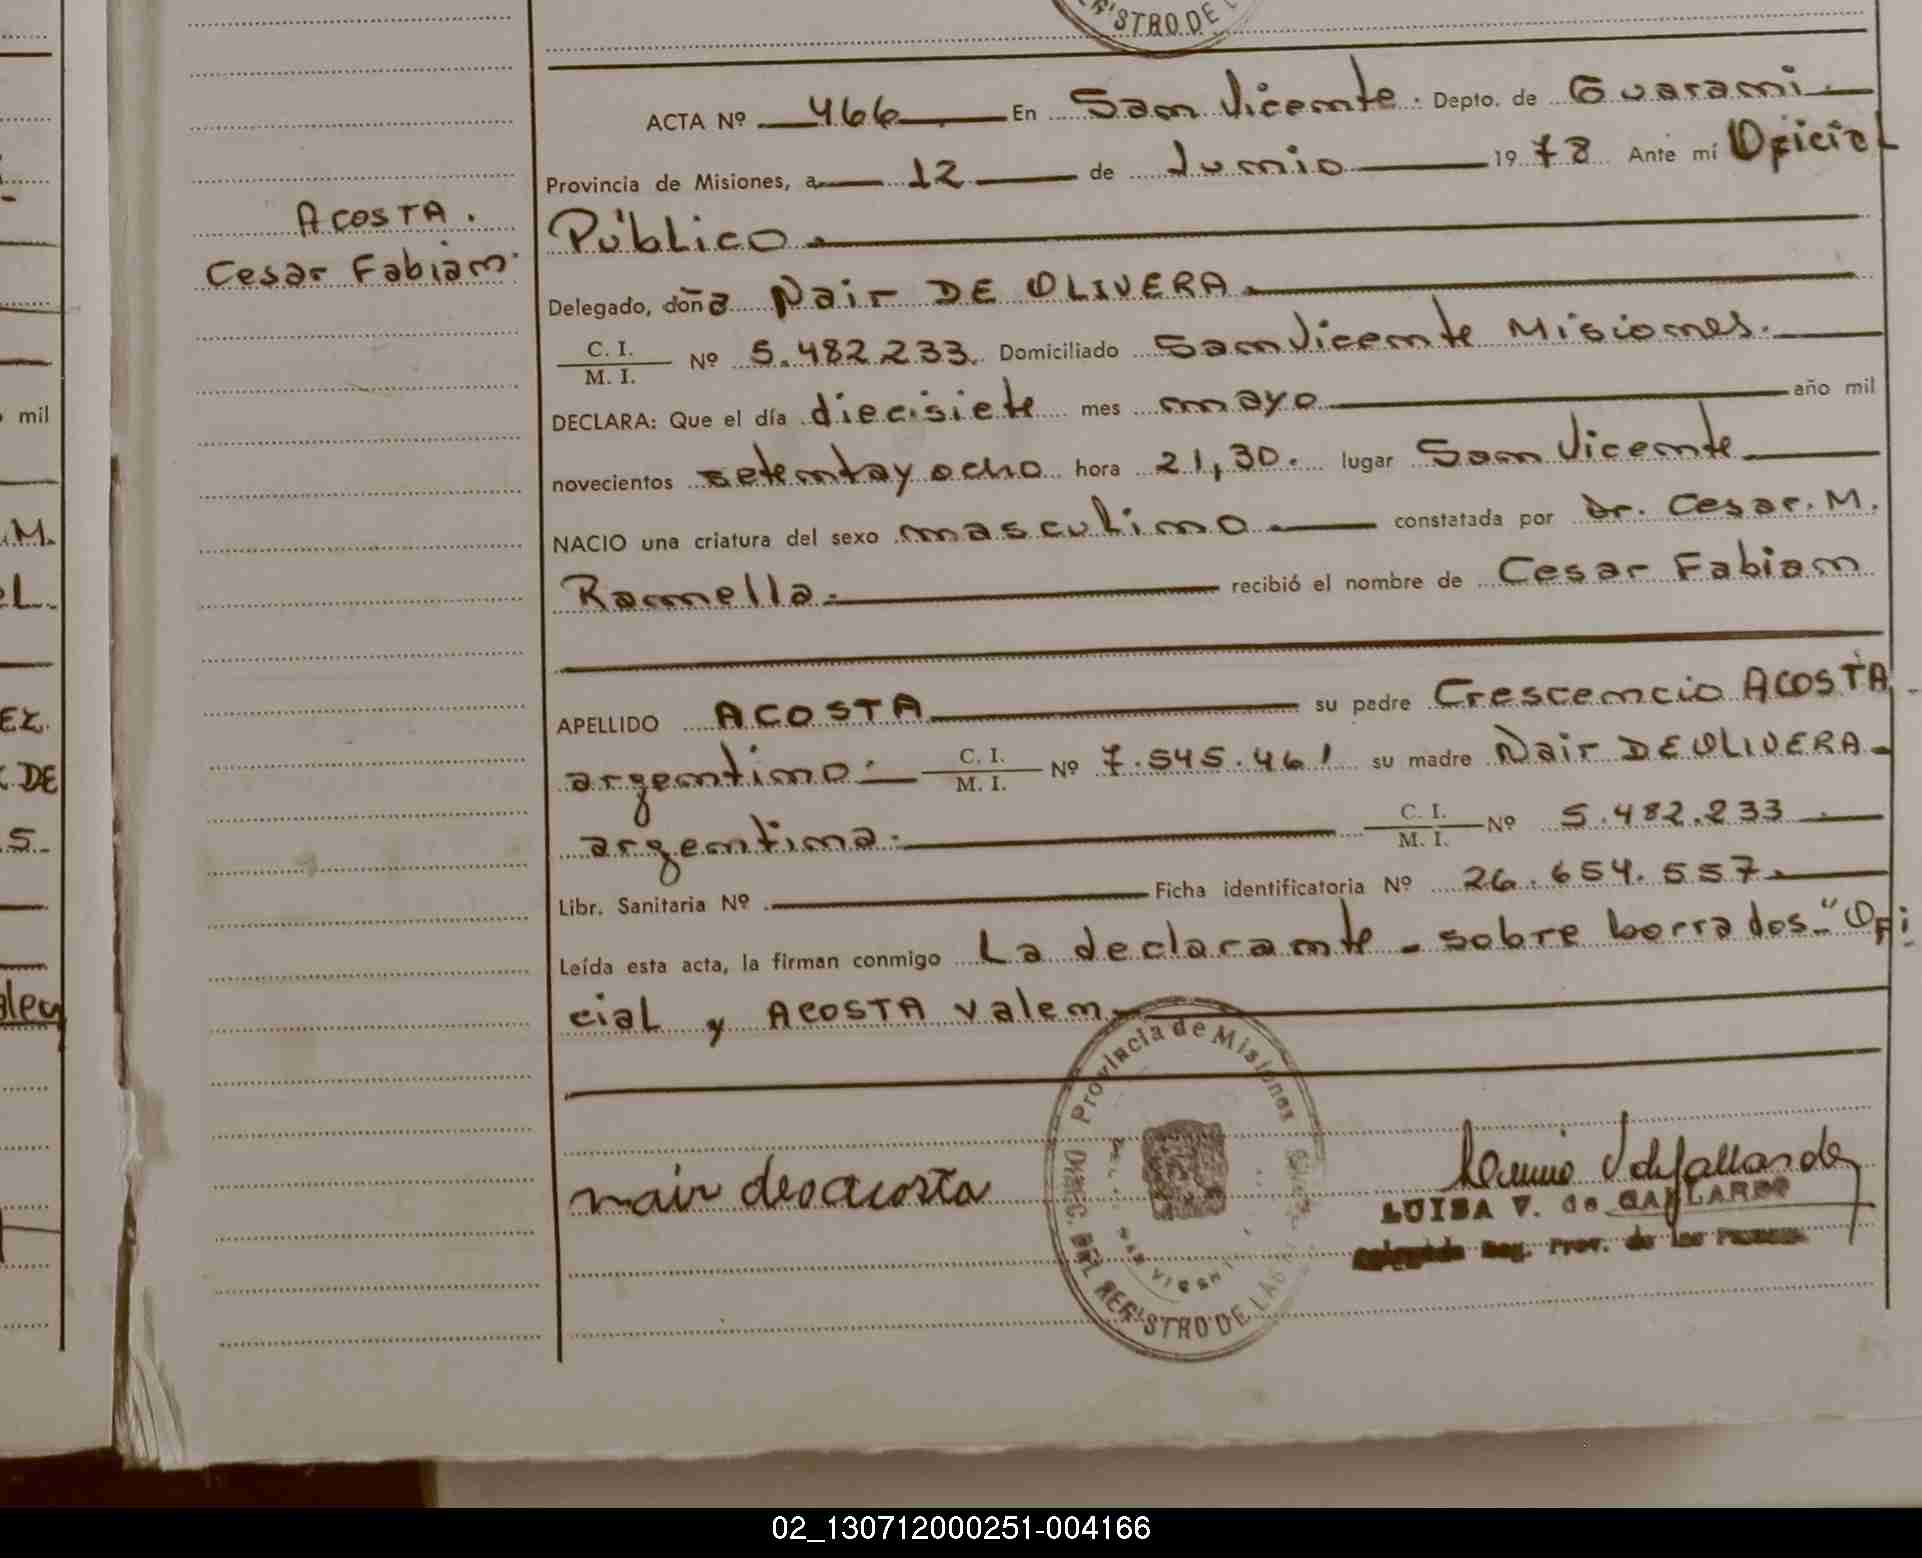 R'STRO DE
ACTA Nº 466 En San Vicente. Depto. de Guarani
Provincia de Misiones, a 12 de Junio 1978 Ante mí Oficial
Público
ACOSTA.
Cesar Fabian
Delegado, doña Nair DE OLIVERA
C. I.
M. I.
Nº 5.482.233. Domiciliado San Vicente Misiones.
DECLARA: Que el día diecisiete mes mayo año mil
novecientos setentay ocho hora 21,30. lugar San Vicente
NACIO una criatura del sexo masculino constatada por Dr. Cesar. M.
Ramella. recibió el nombre de Cesar Fabian
APELLIDO ACOSTA su padre Crescencio ACOSTA
argentino. C. I. M. I. Nº 7.545.461 su madre Nair DE OLIVERA
argentina. C. I. M. I. Nº 5.482.233
Libr. Sanitaria Nº Ficha identificatoria Nº 26.654.557
Leída esta acta, la firman conmigo La declarante - sobre borrados "Ofi
cial y ACOSTA valen
Provincia de Misiones
DEL REGISTRO DE LAS
nair deo acosta
LUISA V. de GALLARDO
mil
M.
EL.
EZ.
DE
S.
02_130712000251-004166